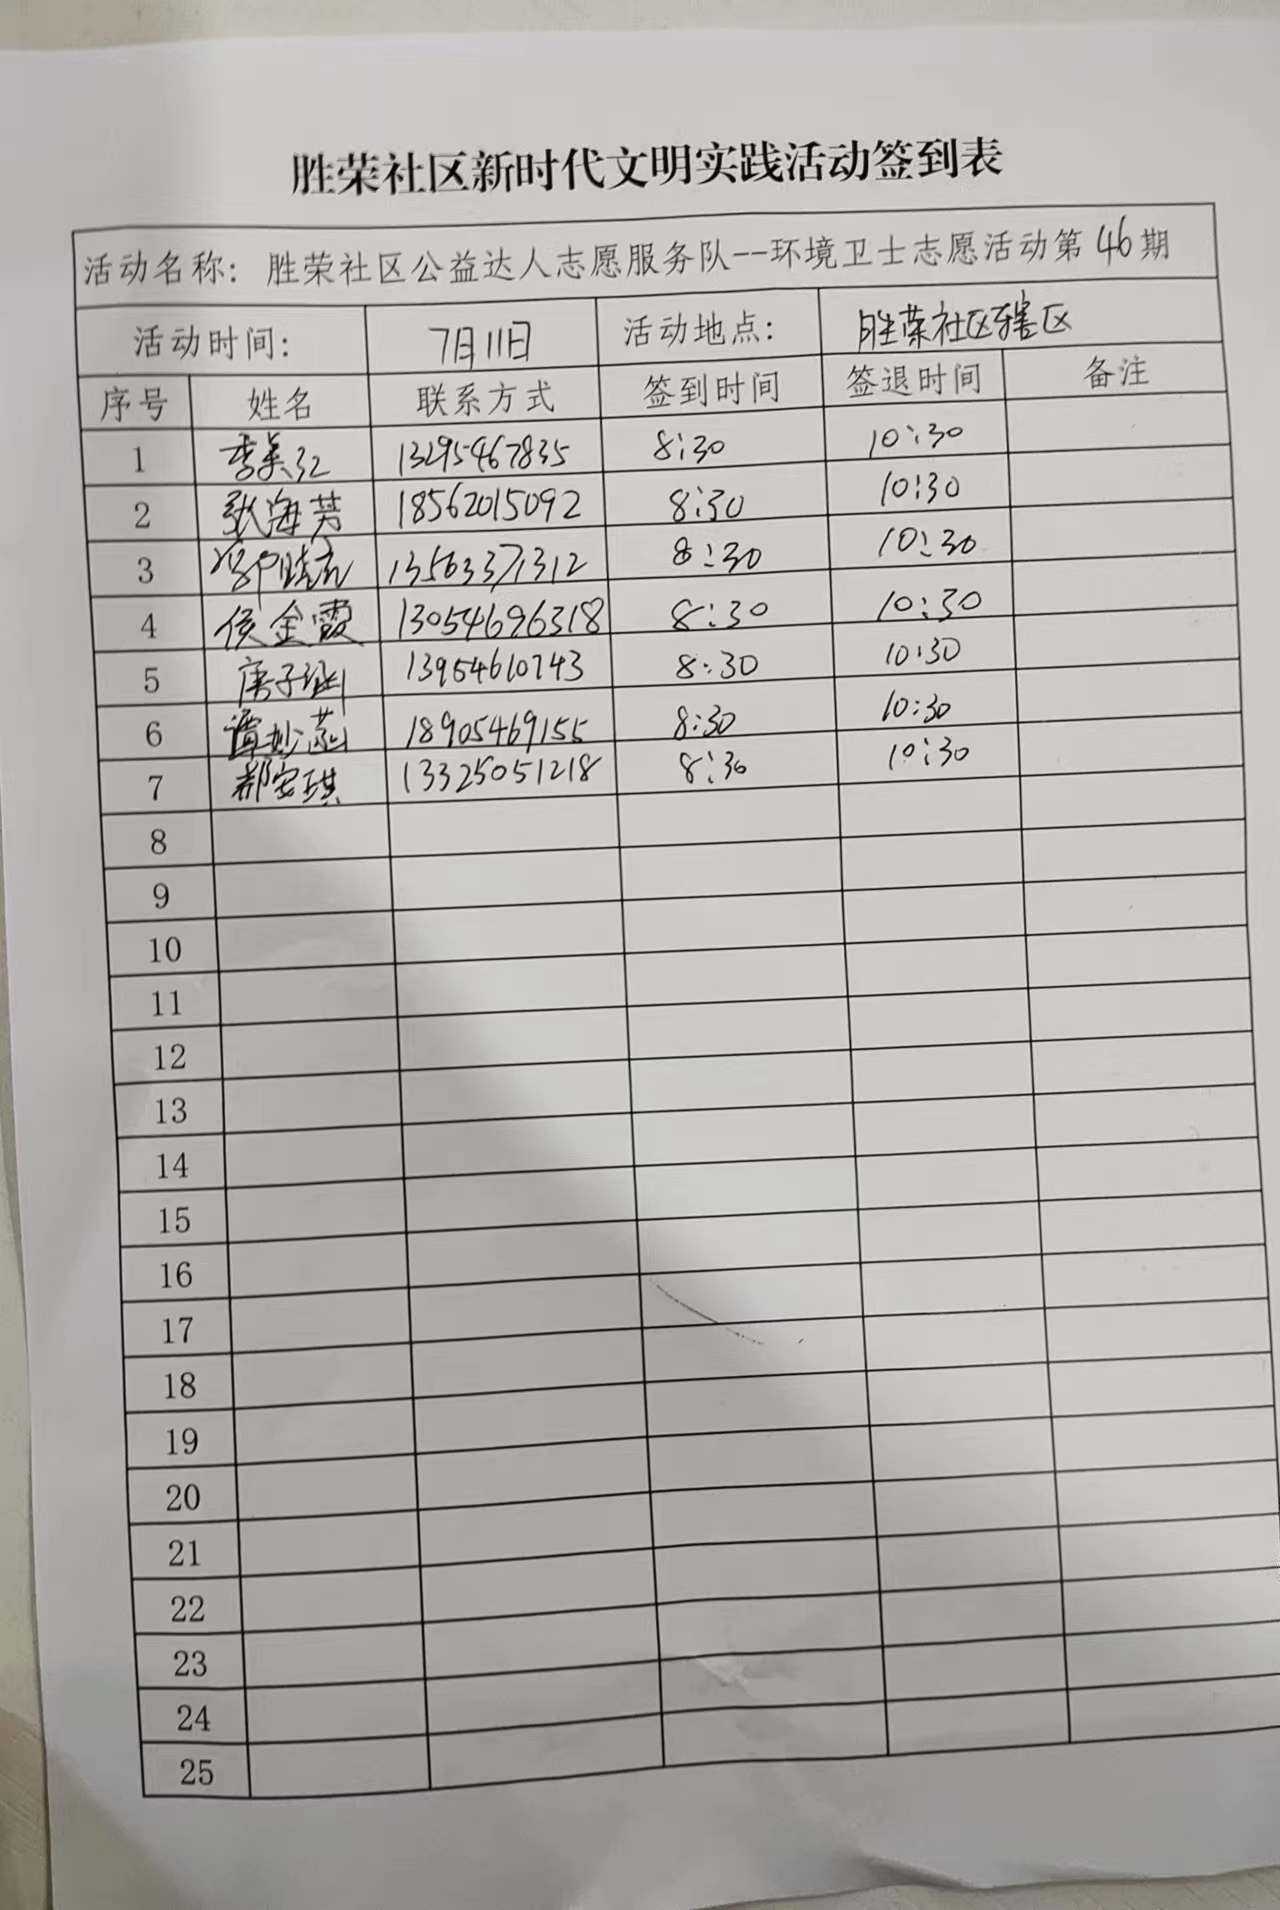 胜荣社区新时代文明实践活动签到表
活动名称: 胜荣社区公益达人志愿服务队--环境卫士志愿活动第46期
活动时间: 7月11日 活动地点: 胜荣社区辖区
序号 姓名 联系方式 签到时间 签退时间 备注
1 李美红 13295467835 8:30 10:30
2 张海芳 18562015092 8:30 10:30
3 13563371312 8:30 10:30
4 侯金霞 13054696318 8:30 10:30
5 13954610743 8:30 10:30
6 谭妙涵 18905469155 8:30 10:30
7 郝安琪 13325051218 8:30 10:30
8
9
10
11
12
13
14
15
16
17
18
19
20
21
22
23
24
25